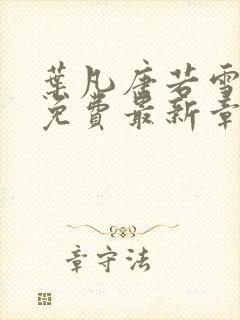 葉凡唐若雪
免費最新章
章守法